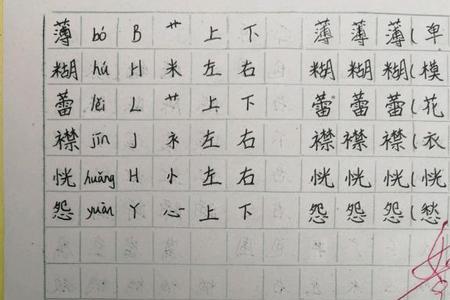 薄 bó B 艹 上 下 薄 薄 薄(单
糊 hú H 米 左 右 糊 糊 糊(模
蕾 lěi L 艹 上 下 蕾 蕾 蕾(花
襟 jīn J 衤 左 右 襟 襟 襟(衣
恍 huǎng H 忄 左 右 恍 恍 恍(
怨 yuàn Y 心 上 下 怨 怨 怨(愁